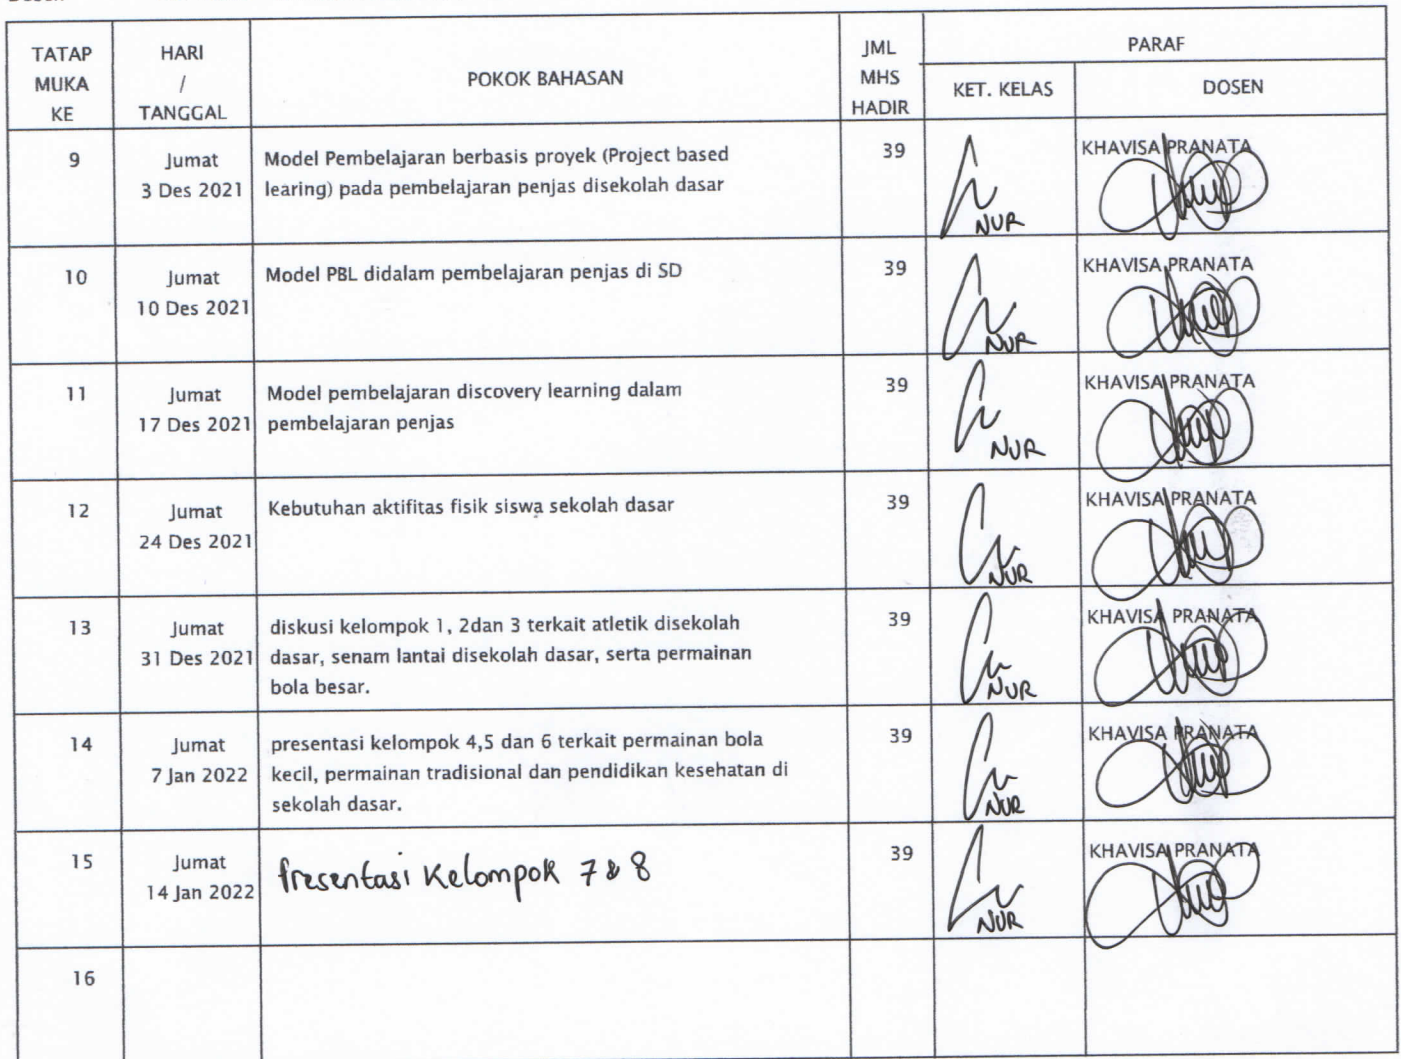 TATAP MUKA KE
HARI / TANGGAL
POKOK BAHASAN
JML MHS HADIR
PARAF
KET. KELAS
DOSEN
9
Jumat
3 Des 2021
Model Pembelajaran berbasis proyek (Project based
learing) pada pembelajaran penjas disekolah dasar
39
NUR
KHAVISA PRANATA
10
Jumat
10 Des 2021
Model PBL didalam pembelajaran penjas di SD
39
NUR
KHAVISA PRANATA
11
Jumat
17 Des 2021
Model pembelajaran discovery learning dalam
pembelajaran penjas
39
NUR
KHAVISA PRANATA
12
Jumat
24 Des 2021
Kebutuhan aktifitas fisik siswa sekolah dasar
39
NUR
KHAVISA PRANATA
13
Jumat
31 Des 2021
diskusi kelompok 1, 2dan 3 terkait atletik disekolah
dasar, senam lantai disekolah dasar, serta permainan
bola besar.
39
NUR
KHAVISA PRANATA
14
Jumat
7 Jan 2022
presentasi kelompok 4,5 dan 6 terkait permainan bola
kecil, permainan tradisional dan pendidikan kesehatan di
sekolah dasar.
39
NUR
KHAVISA PRANATA
15
Jumat
14 Jan 2022
Presentasi Kelompok 7 & 8
39
NUR
KHAVISA PRANATA
16